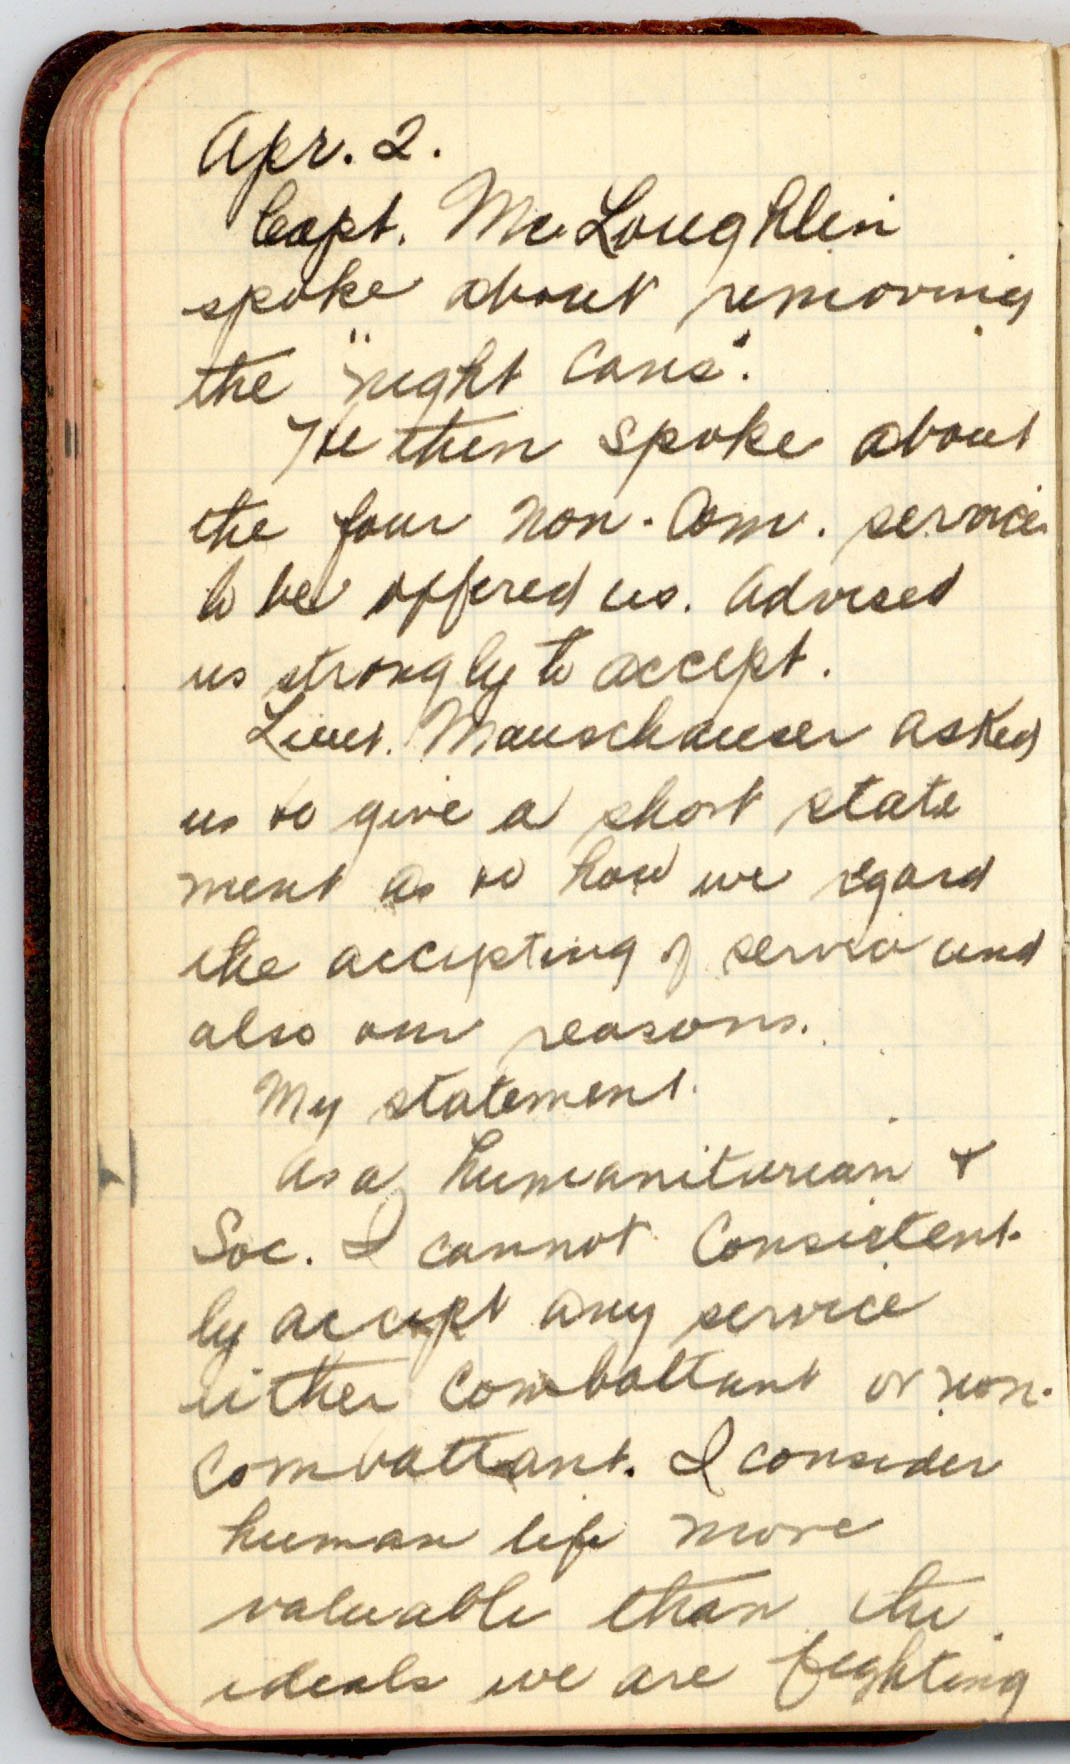 Apr. 2.
Capt. McLoughlin
spoke about removing
the "night cans".
He then spoke about
the four non-Com. service
to be offered us. Advised
us strongly to accept.
Lieut. Mauschauser asked
us to give a short state
ment as to how we regard
the accepting of service and
also our reasons.
My statement.
As a humaniturian &
Soc. I cannot consistent-
ly accept any service
either combattant or non-
combattant. I consider
human life more
valuable than the
ideals we are fighting